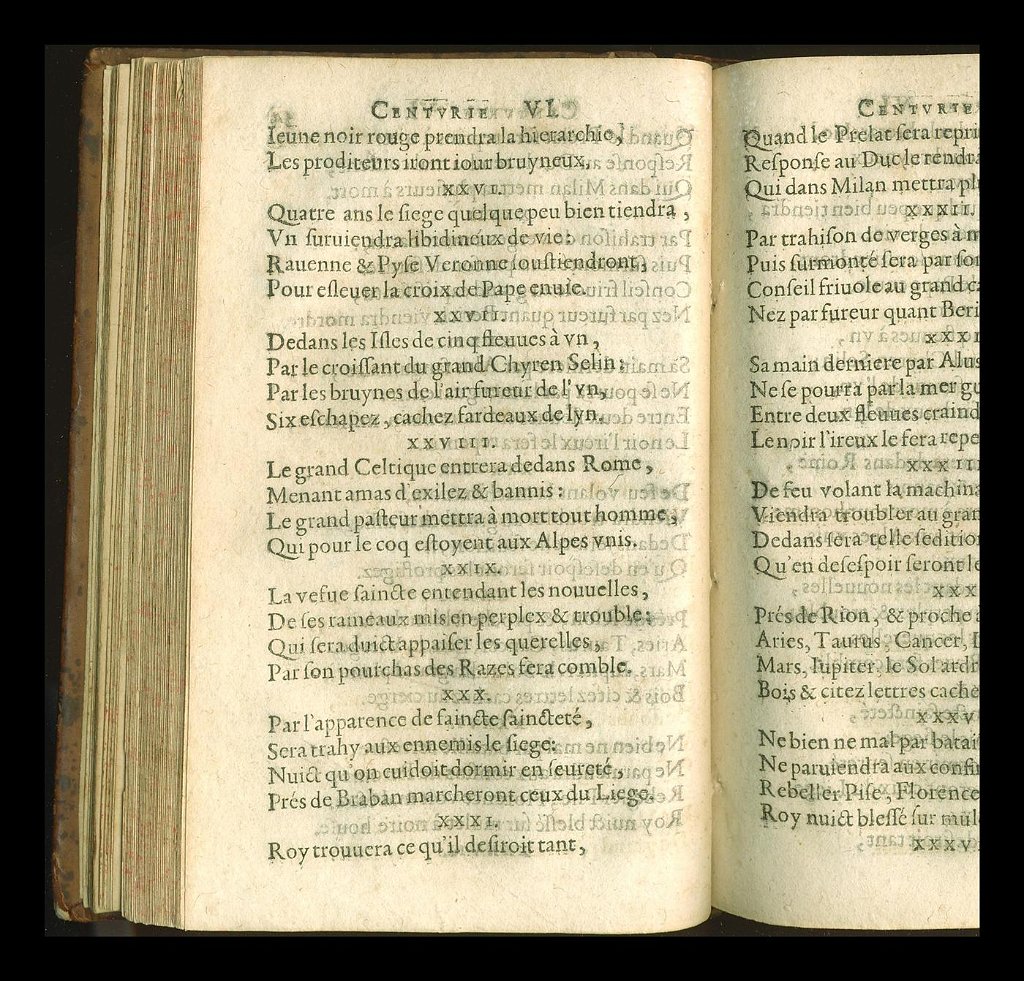 CENTVRIE VI.
Ieune noir rouge prendra la hierarchie,
Les proditeurs iront iour bruyneux.
XXVI.
Quatre ans le siege quelque peu bien tiendra,
Vn suruiendra libidineux de vie:
Rauenne & Pyse Veronne soustiendront,
Pour esleuer la croix de Pape enuie.
XXVII.
Dedans les Isles de cinq fleuues à vn,
Par le croissant du grand Chyren Selin:
Par les bruynes de l'air fureur de l'vn,
Six eschapez, cachez fardeaux de lyn.
XXVIII.
Le grand Celtique entrera dedans Rome,
Menant amas d'exilez & bannis:
Le grand pasteur mettra à mort tout homme,
Qui pour le coq estoyent aux Alpes vnis.
XXIX.
La vefue saincte entendant les nouuelles,
De ses rameaux mis en perplex & trouble:
Qui sera duict appaiser les querelles,
Par son pourchas des Razes fera comble.
XXX.
Par l'apparence de saincte saincteté,
Sera trahy aux ennemis le siege:
Nuict qu'on cuidoit dormir en seureté,
Prés de Braban marcheront ceux du Liege.
XXXI.
Roy trouuera ce qu'il desiroit tant,
CENTVRIE
Quand le Prelat sera repri
Response au Duc le rendra
Qui dans Milan mettra pl
XXXII.
Par trahison de verges à m
Puis surmonté sera par son
Conseil friuole au grand ca
Nez par fureur quant Beri
XXXI
Sa main derniere par Alus
Ne se pourra par la mer gu
Entre deux fleuues craind
Le noir l'ireux le fera repe
XXXIII
De feu volant la machina
Viendra troubler au gran
Dedans sera telle seditio
Qu'en desespoir seront le
XXX
Prés de Rion, & proche a
Aries, Taurus, Cancer, L
Mars, Iupiter, le Sol ardr
Bois & citez lettres cache
XXXV
Ne bien ne mal par batai
Ne paruiendra aux confi
Rebeller Pise, Florence
Roy nuict blessé sur mul
XXXV